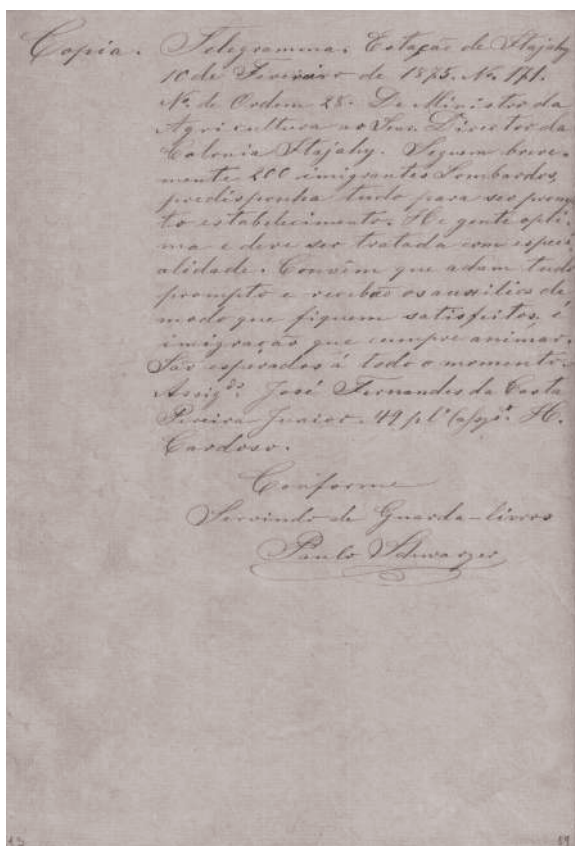 Copia. Telegramma. Estação de Itajahy
10 de Fevereiro de 1875. Nº. 171.
Nº. de Ordem 28. De Ministro da
Agricultura ao Senr. Director da
Colonia Itajahy. Seguem breve-
mente 200 imigrantes Lombardos,
predisponha tudo para ser promp-
to estabelecimento. He gente opti-
ma e deve ser tratada com especi-
alidade. Convêm que achem tudo
prompto e recebão os auxilios de
modo que fiquem satisfeitos, é
imigração que cumpre animar.
São esperados á todo o momento.
Assigdº. José Fernandes da Costa
Pereira Junior. 49 pl H.
Cardoso.
Conforme
Servindo de Guarda-livros
Paulo Schwarzer